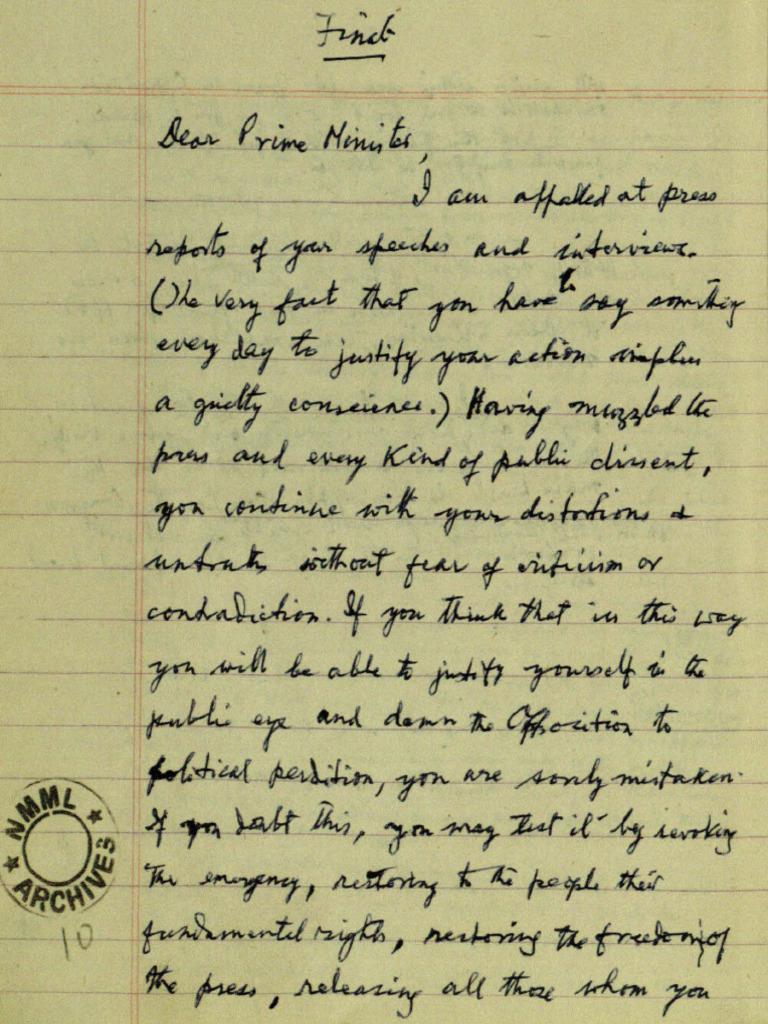 Final
Dear Prime Minister,
I am appalled at press
reports of your speeches and interviews.
(The very fact that you have to say something
every day to justify your action implies
a guilty conscience.) Having muzzled the
press and every kind of public dissent,
you continue with your distortions &
untruths without fear of criticism or
contradiction. If you think that in this way
you will be able to justify yourself in the
public eye and damn the Opposition to
political perdition, you are sorely mistaken.
If you doubt this, you may test it by revoking
the emergency, restoring to the people their
fundamental rights, restoring the freedom of
the press, releasing all those whom you
NMML
ARCHIVES
10